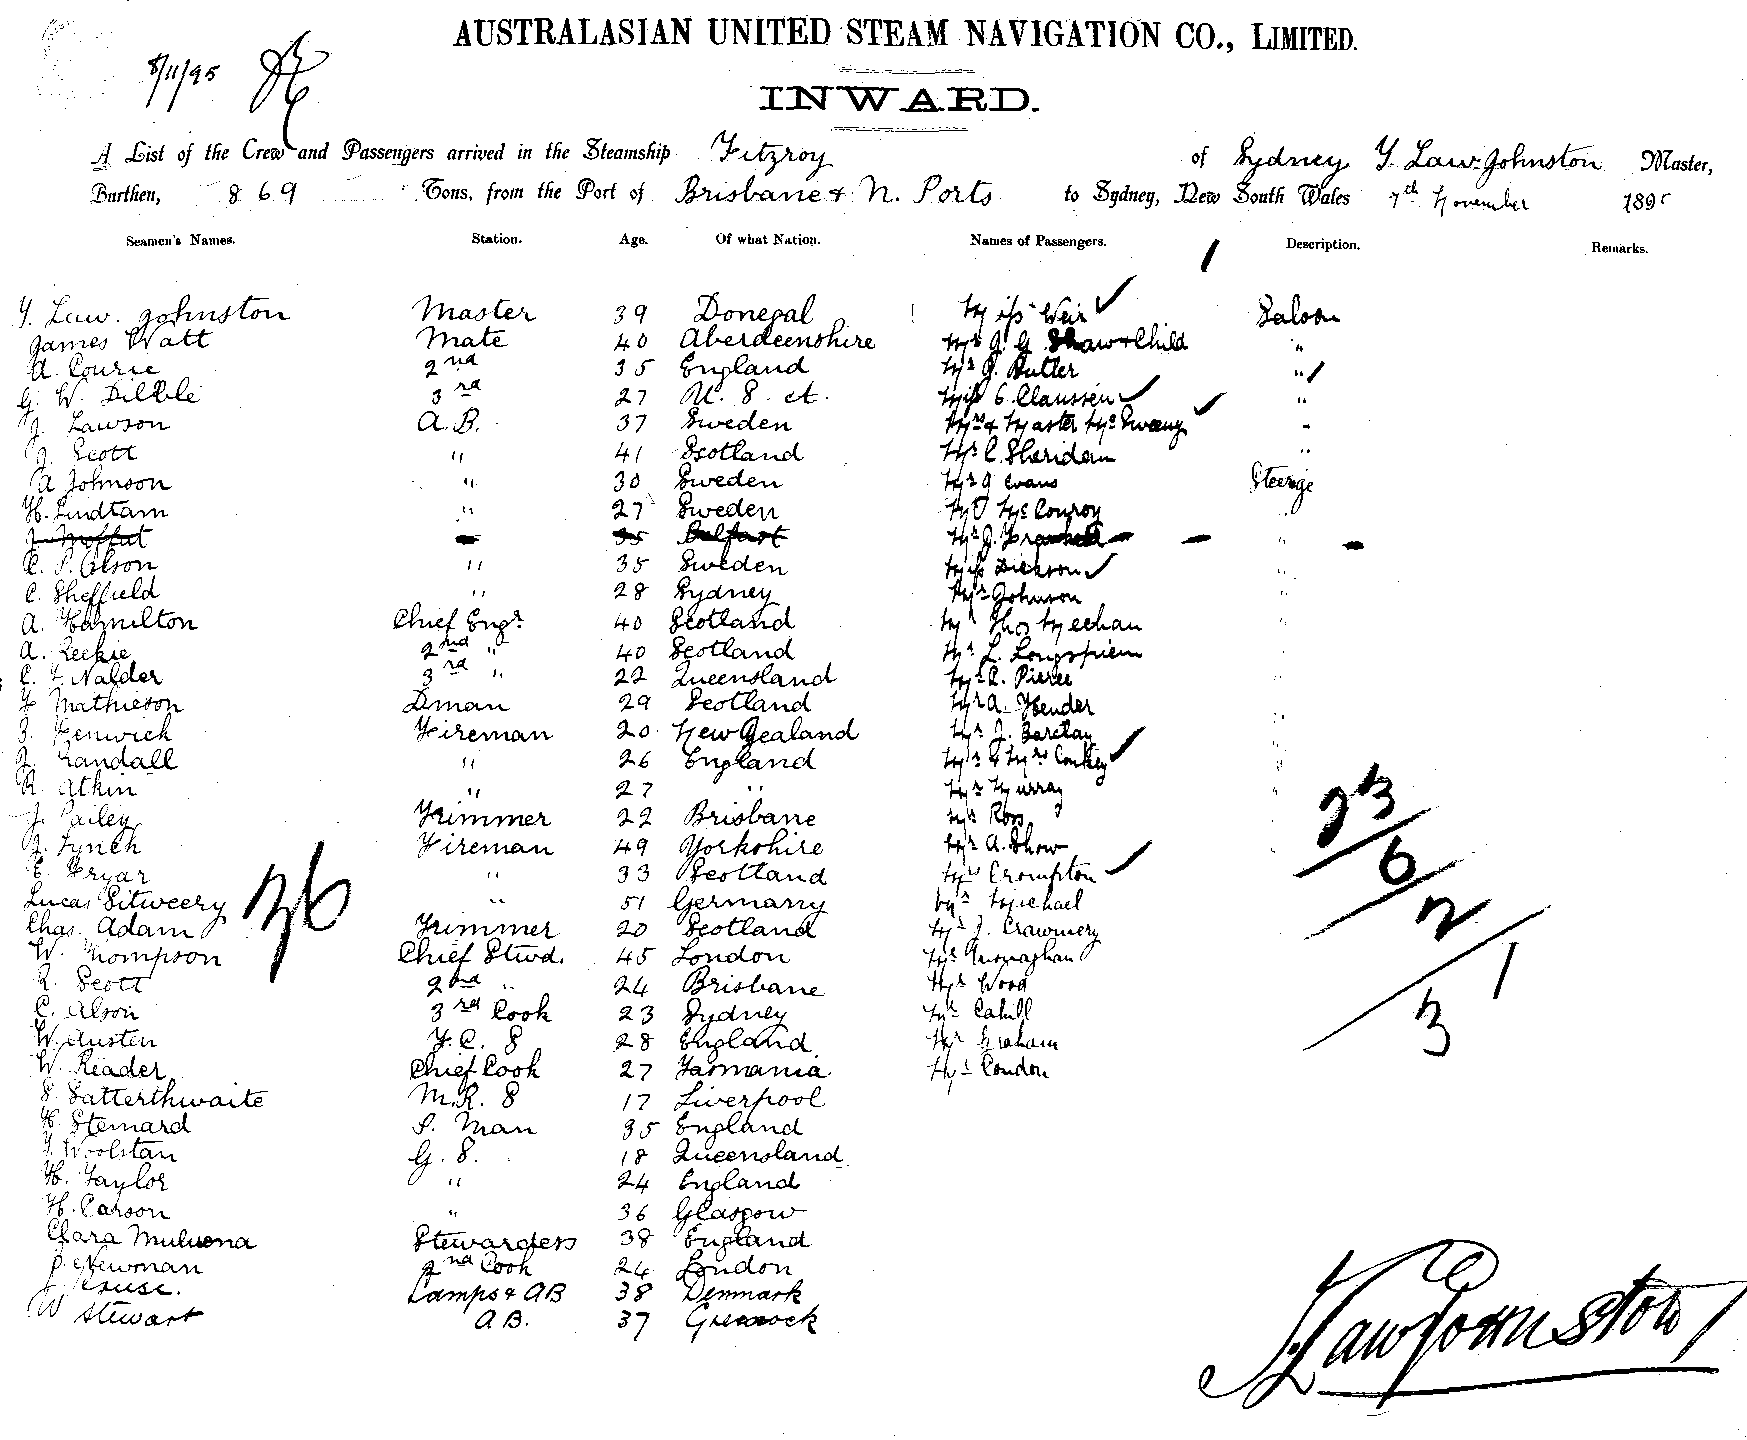 AUSTRALASIAN UNITED STEAM NAVIGATION CO., LIMITED.
8/11/95
INWARD.
A List of the Crew and Passengers arrived in the Steamship Fitzroy of Sydney T. Law. Johnston Master,
Burthen, 869 Tons, from the Port of Brisbane & N. Ports to Sydney, New South Wales 7th November 1895
Seamen's Names. Station. Age. Of what Nation. Names of Passengers. Description. Remarks.
T. Law. Johnston Master 39 Donegal Miss Weir Saloon
James Watt Mate 40 Aberdeenshire Mrs J. G. Shaw & Child "
A. Courie 2nd 35 England Mr J. Butler "
G. W. Dibble 3rd 27 U. S. Miss C. Claussen "
J. Lawson A.B. 37 Sweden Mrs & Master "
J. Scott " 41 Scotland Mr C. Sheridan "
A Johnson " 30 Sweden Mr J Evans Steerage
H. Lindtam " 27 Sweden McConroy
J. Moffat 35 Belfast Mr J. "
C. P. Olson " 35 Sweden Miss Dickson "
C. Sheffield " 28 Sydney Mr Johnson "
A. Hamilton Chief Engr. 40 Scotland Mr Thos Meehan
A. Leckie 2nd " 40 Scotland Mr L.
C. F. Nalder 3rd " 22 Queensland Mr R. Pierce
F Mathieson Dman 29 Scotland Mr A. Hender
Fenwick Fireman 20 New Zealand Mr J. Barclay
J. Randall " 26 England Mr & Mrs Conkey
R. Atkin " 27 " Mr Murray
J. Bailey Trimmer 22 Brisbane Mr Ross
J. Lynch Fireman 49 Yorkshire Mr A. Show
E. Fryar " 33 Scotland Mrs Crompton
Lucas Sitweery " 51 Germany Mr Michael
Chas. Adam Trimmer 20 Scotland Mr J.
W. Thompson Chief Stwd. 45 London Mr
R. Scott 2nd " 24 Brisbane Mr Wood
C. Olson 3rd Cook 23 Sydney Mr Cahill
W. Austen F. C. S 28 England Mr Graham
W. Reader Chief Cook 27 Tasmania Mr Condon
S. Satterthwaite M.R. S 17 Liverpool
H. Stennard P. Man 35 England
T. Woolstan G. S. 18 Queensland
H. Taylor " 24 England
H. Carson " 36 Glasgow
Clara Stewardess 38 England
J. Newman 2nd Cook 24 London
J. Lamps & AB 38 Denmark
W Stewart A B. 37 Greenock
36
23
6
2
1
3
T. Law Johnston